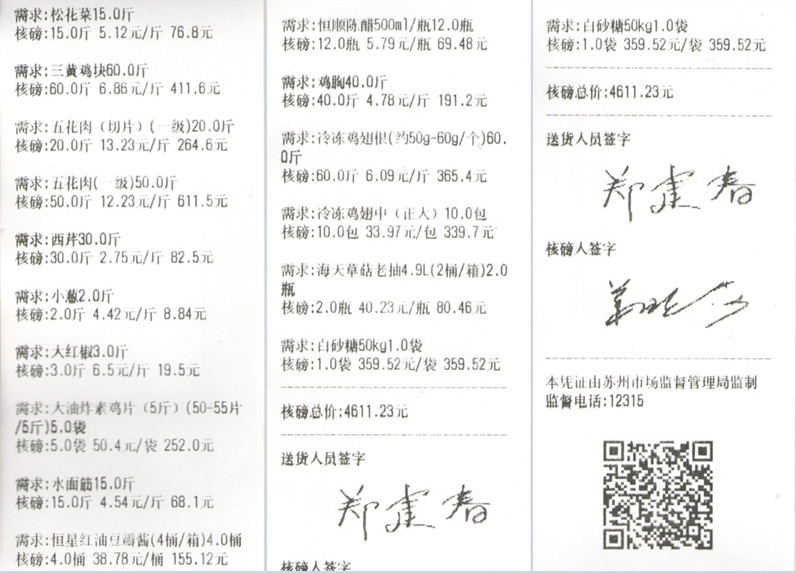 需求:松花菜15.0斤
核磅:15.0斤 5.12元/斤 76.8元
需求:三黄鸡块60.0斤
核磅:60.0斤 6.86元/斤 411.6元
需求:五花肉（切片）(一级)20.0斤
核磅:20.0斤 13.23元/斤 264.6元
需求:五花肉(一级)50.0斤
核磅:50.0斤 12.23元/斤 611.5元
需求:西芹30.0斤
核磅:30.0斤 2.75元/斤 82.5元
需求:小葱2.0斤
核磅:2.0斤 4.42元/斤 8.84元
需求:大红椒3.0斤
核磅:3.0斤 6.5元/斤 19.5元
需求:大油炸素鸡片（5斤）(50-55片
/5斤)5.0袋
核磅:5.0袋 50.4元/袋 252.0元
需求:水面筋15.0斤
核磅:15.0斤 4.54元/斤 68.1元
需求:恒星红油豆瓣酱(4桶/箱)4.0桶
核磅:4.0桶 38.78元/桶 155.12元
需求:恒顺陈醋500ml/瓶12.0瓶
核磅:12.0瓶 5.79元/瓶 69.48元
需求:鸡胸40.0斤
核磅:40.0斤 4.78元/斤 191.2元
需求:冷冻鸡翅根(约50g-60g/个)60.
0斤
核磅:60.0斤 6.09元/斤 365.4元
需求:冷冻鸡翅中（正大）10.0包
核磅:10.0包 33.97元/包 339.7元
需求:海天草菇老抽4.9L(2桶/箱)2.0
瓶
核磅:2.0瓶 40.23元/瓶 80.46元
需求:白砂糖50kg1.0袋
核磅:1.0袋 359.52元/袋 359.52元
核磅总价:4611.23元
送货人员签字
郑建春
核磅人签字
需求:白砂糖50kg1.0袋
核磅:1.0袋 359.52元/袋 359.52元
核磅总价:4611.23元
送货人员签字
郑建春
核磅人签字
本凭证由苏州市场监督管理局监制
监督电话:12315